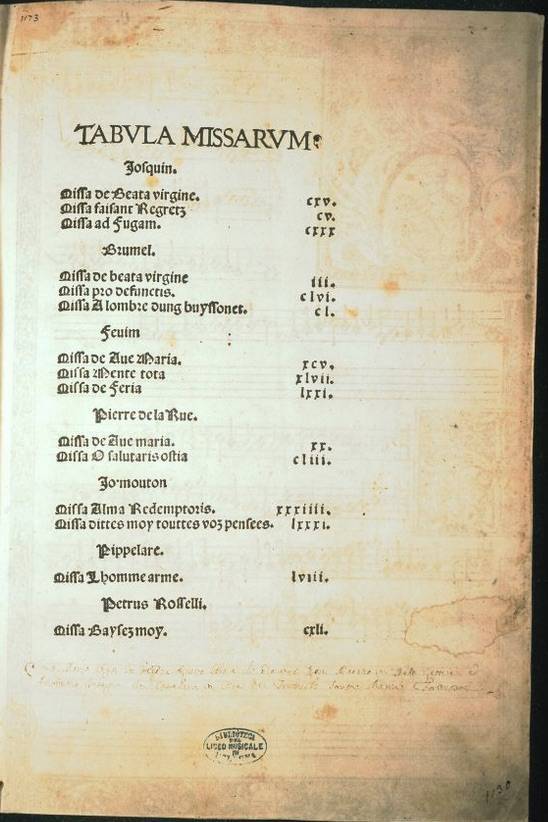 1173
TABVLA MISSARVM:
Josquin.
Missa de Beata virgine. cxv.
Missa faisant Regretz cv.
Missa ad Fugam. cxxx
Brumel.
Missa de beata virgine iii.
Missa pro defunctis. clvi.
Missa A lombre dung buyssonet. cl.
Feuim
Missa de Aue Maria. xcv.
Missa Mente tota xlvii.
Missa de Feria lxxi.
Pierre de la Rue.
Missa de Aue maria. xx.
Missa O salutaris ostia cliii.
Jo. mouton
Missa Alma Redemptoris. xxxiiii.
Missa dittes moy touttes voz pensees. lxxxi.
Pippelare.
Missa Lhomme arme. lviii.
Petrus Rosselli.
Missa Baysez moy. cxli.
BIBLIOTECA
DEL
LICEO MUSICALE